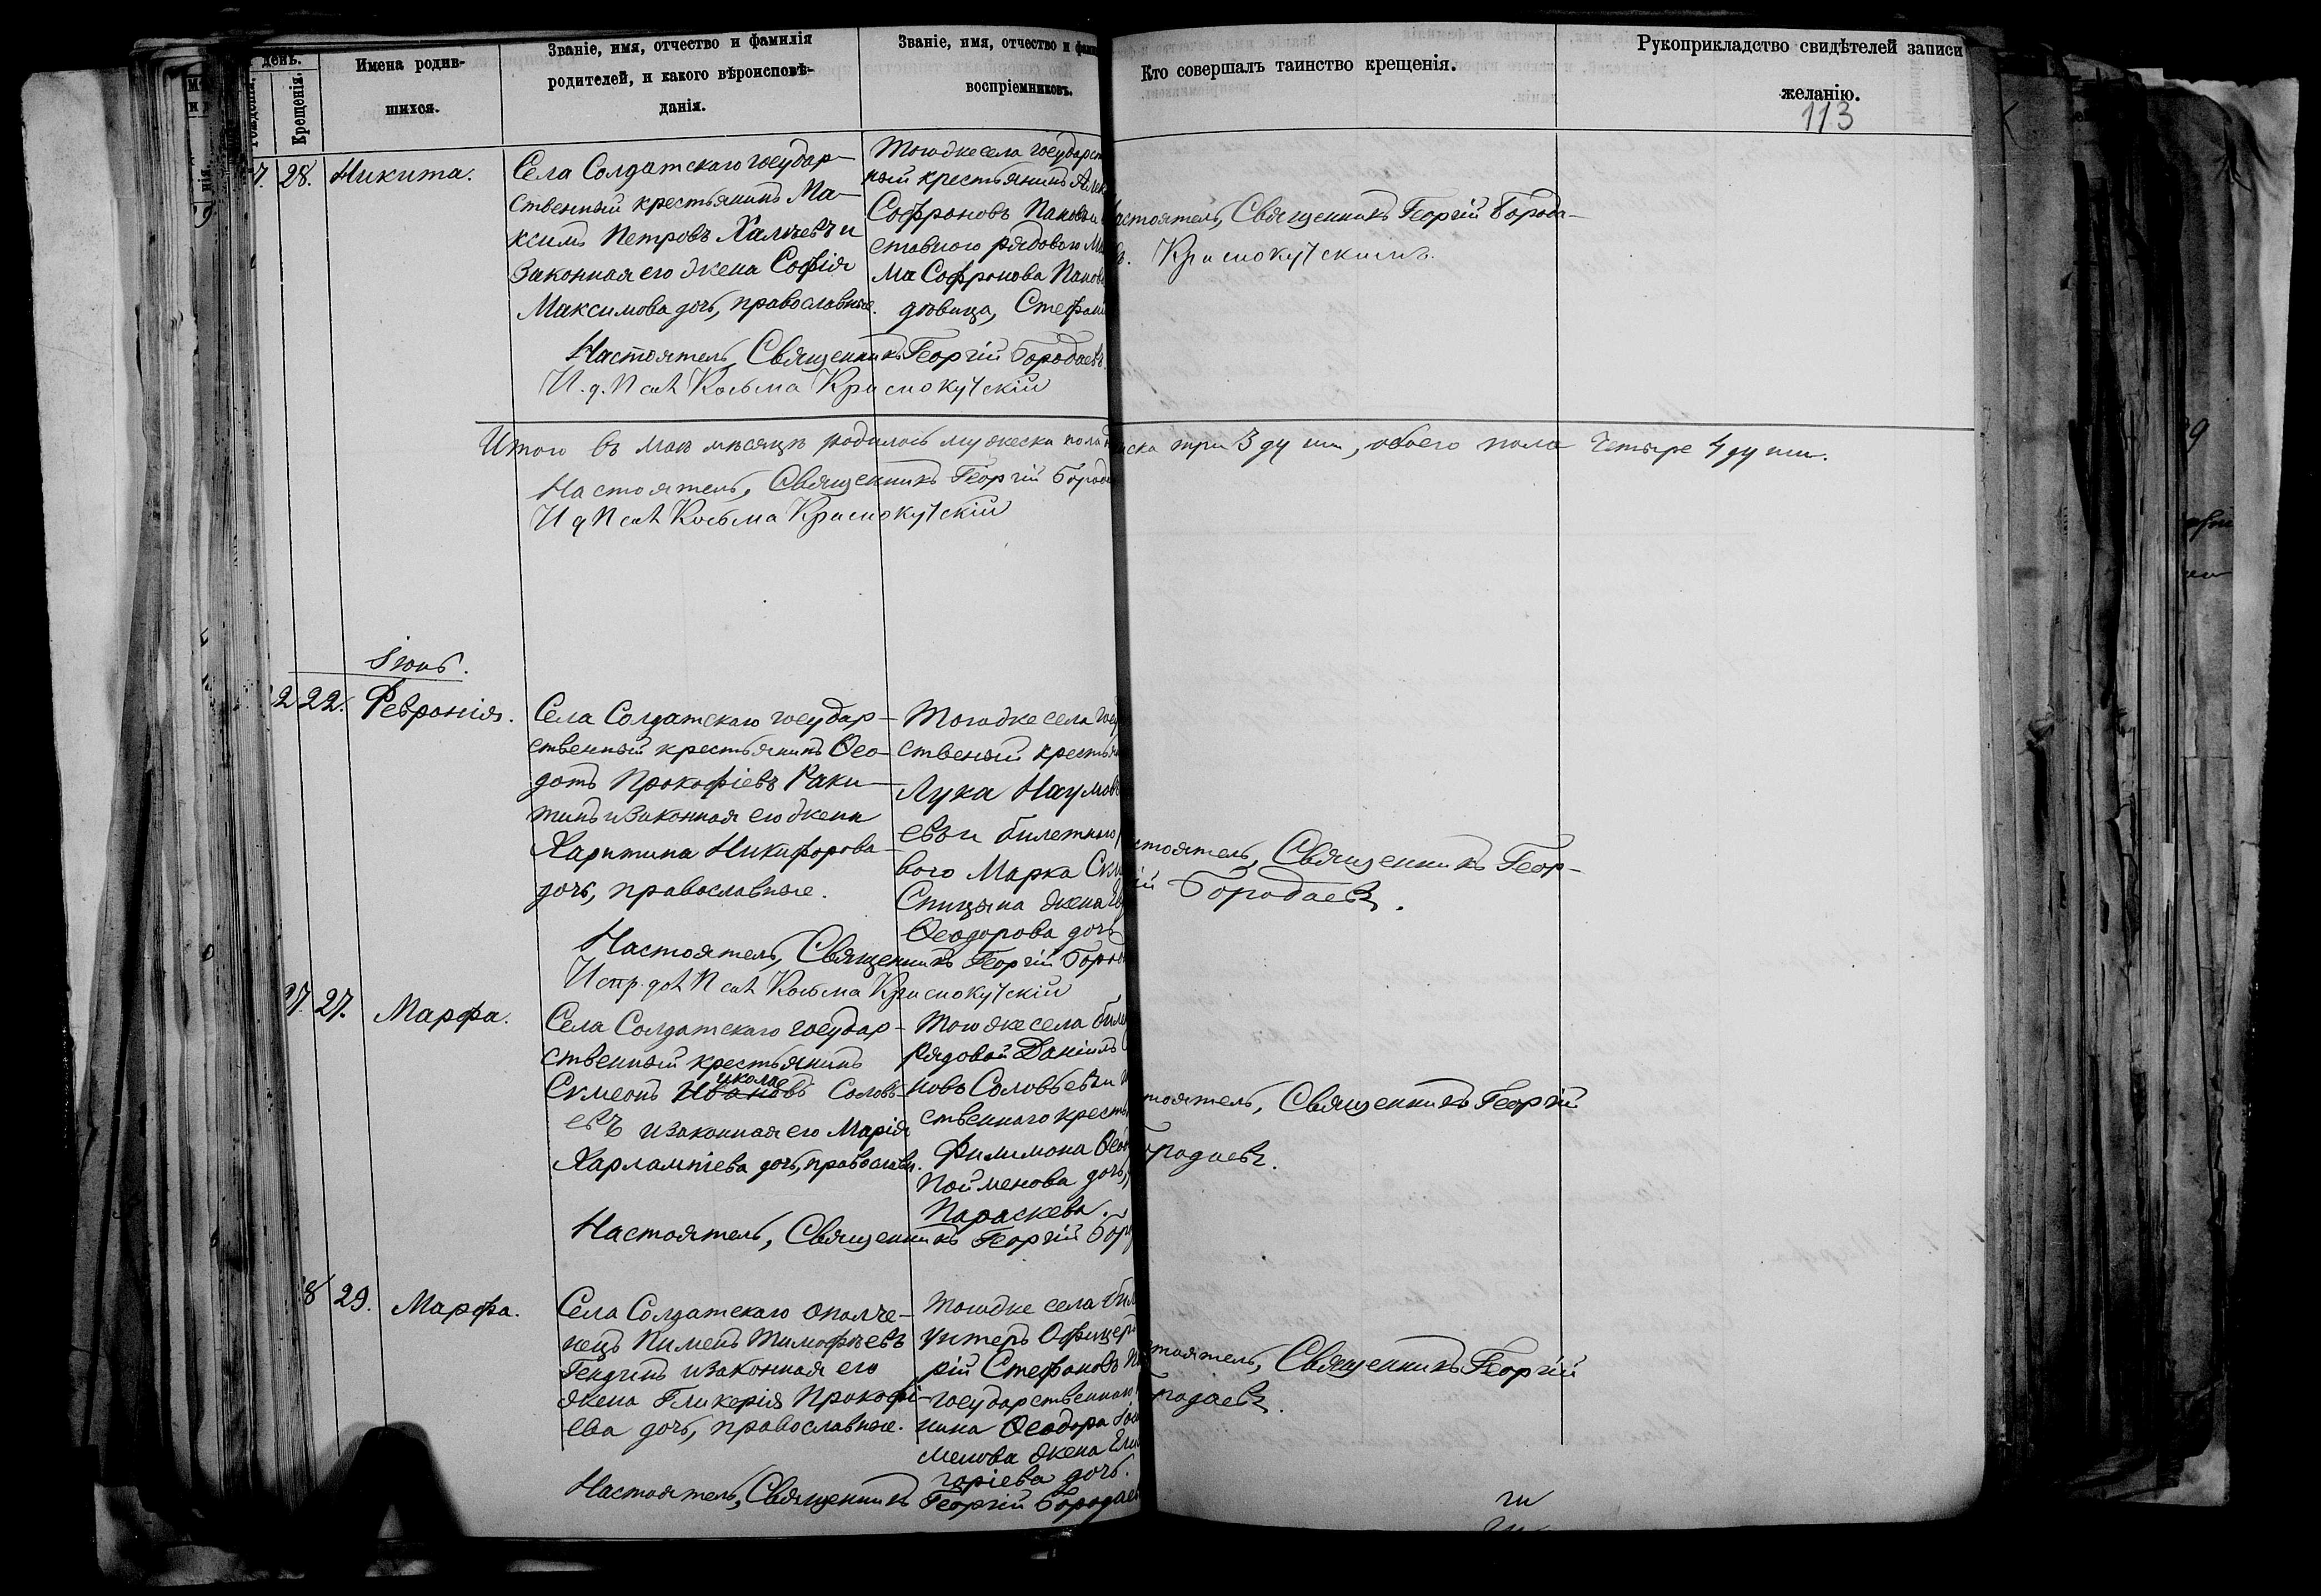 день.
Рожденія.
Крещенія.
Имена родив-
шихся.
Званіе, имя, отчество и фамилія
родителей, и какого вѣроисповѣ-
данія.
Званіе, имя, отчество и
воспріемниковъ.
Кто совершалъ таинство крещенія.
Рукоприкладство свидѣтелей записи
желанію.
113
28. Никита.
Села Солдатскаго государ-
ственный крестьянинъ Ма-
ксимъ Петровъ Халчевъ и
Законная его жена Софія
Максимова дочь, православные.
Тогоже села государст
ный крестьянинъ
Софроновъ Пановъ и
ставного рядового
ма Софронова
дѣвица,
Настоятель, Священникъ Георгій Борода-
Краснокутскимъ.
Настоятель, Священникъ Георгій Бородаевъ.
И. д. Псал Косьма Краснокутскій
Итого въ маѣ мѣсяцѣ родилось мужеска пола
три 3 души, обоего пола четыре 4 души.
Настоятель, Священникъ Георгій
И д Псал Косьма Краснокутскій
Іюнь.
22. Февронія.
Села Солдатскаго государ-
ственный крестьянинъ Ѳео-
дотъ Прокофіевъ Раки-
тинъ и Законная его жена
Харитина Никифорова
дочь, православные.
Тогоже села
ственый
Лука Наумовъ
евъ и билетнаго
вого Марка
Спицына жена
Ѳеодорова дочь
Священникъ Геор-
гій Бородаевъ.
Настоятель, Священникъ Георгій
Испр. дол Псал Косьма Краснокутскій
27. Марфа.
Села Солдатскаго государ-
ственный крестьянинъ
Сѵмеонъ Николаевъ Соловь-
евъ и законная его Марія
Харлампіева дочь, православн.
Тогоже села
рядовой Даніилъ
новъ Соловьевъ и
ственнаго
Филимона
Пойменова дочь,
Параскева.
Священникъ Георгій
Настоятель, Священникъ Георгій
29. Марфа.
Села Солдатскаго ополче-
нецъ Пименъ Тимофѣевъ
Гендинъ и законная его
жена Гликерія Прокофі-
ева дочь, православные.
Тогоже села
унтеръ Офицеръ
рій Стефановъ
государственнаго
нина Ѳеодора
менова жена
горіева дочь.
Священникъ Георгій
Настоятель, Священникъ Георгій